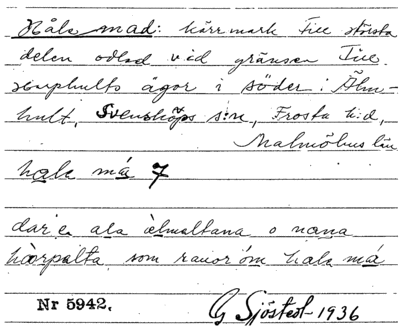 Håla mad: kärrmark till största
delen odlad vid gränsen till
Harphults ägor i söder i Älm-
hult, Svensköps s:n, Frosta h:d,
Malmöhus län
hala má 7
dar e ala älmaltana o nana
hårpalta som rauor óm hala má
Nr 5942. G Sjöstedt 1936